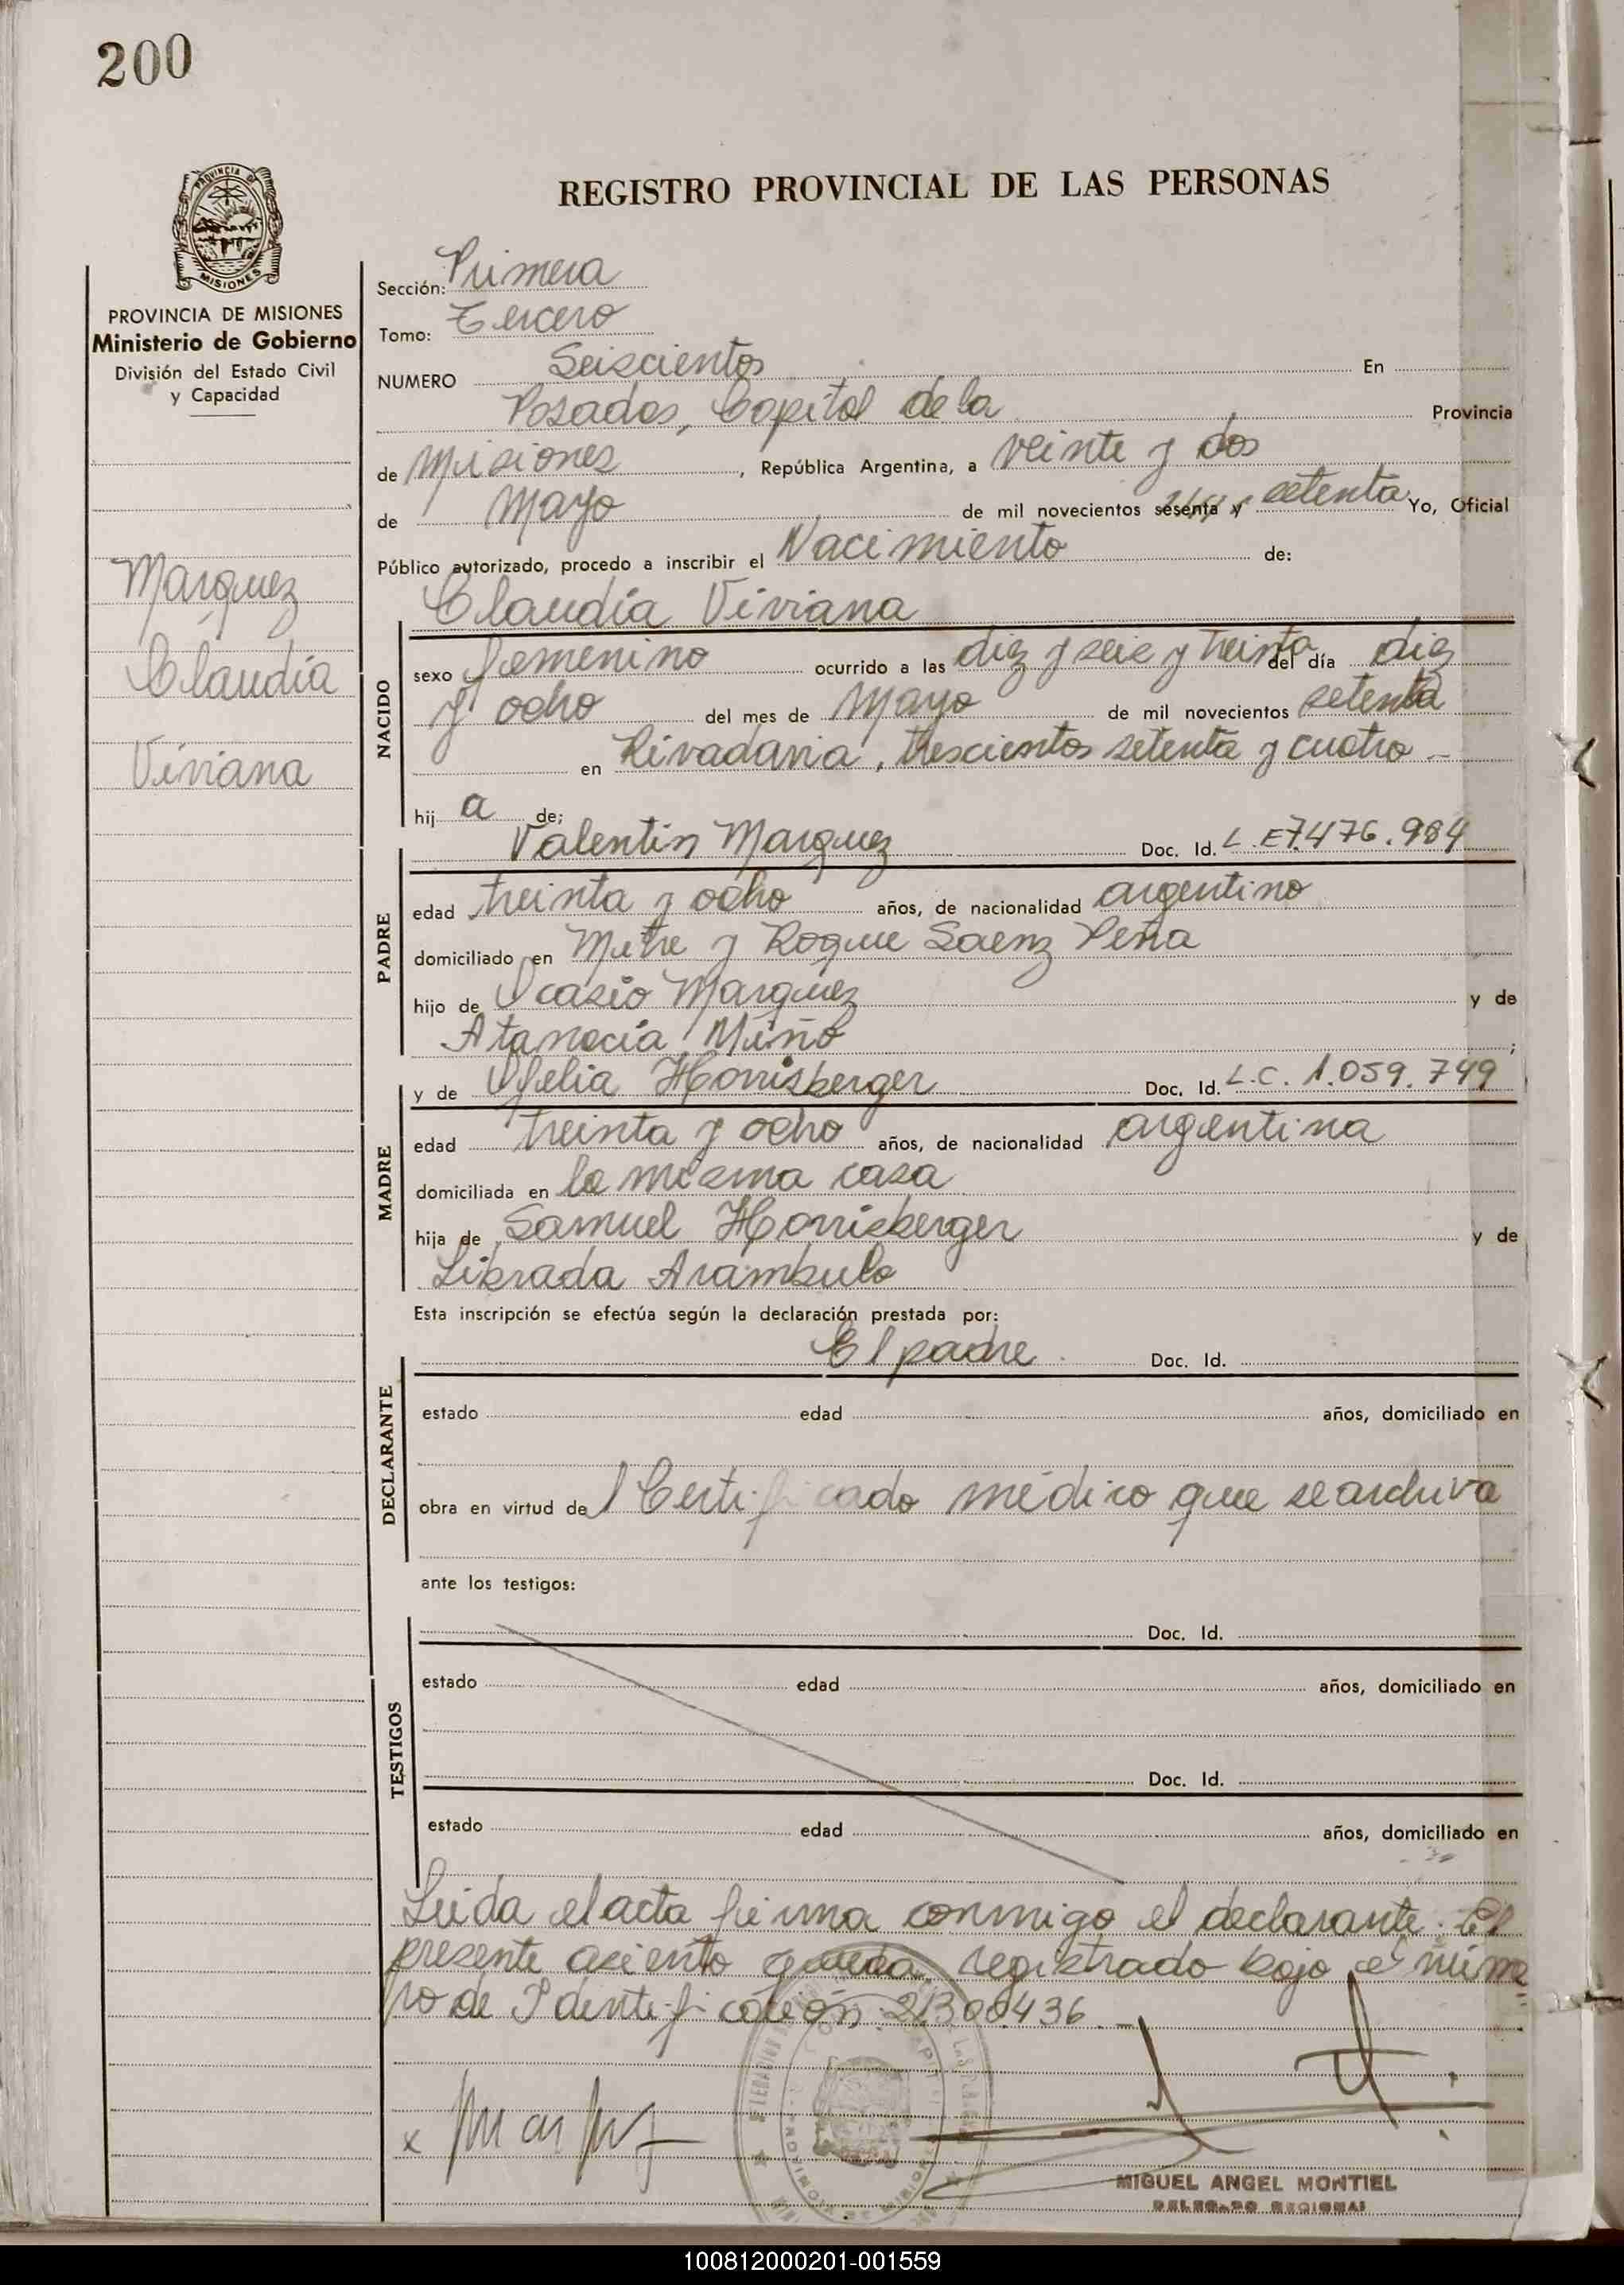 200
PROVINCIA DE
MISIONES
PROVINCIA DE MISIONES
Ministerio de Gobierno
División del Estado Civil
y Capacidad
Marquez
Claudia
Viviana
REGISTRO PROVINCIAL DE LAS PERSONAS
Sección: Primera
Tomo: Tercero
NUMERO Seiscientos En
Posadas, Capital de la Provincia
de Misiones, República Argentina, a veinte y dos
de Mayo de mil novecientos sesenta y setenta Yo, Oficial
Público autorizado, procedo a inscribir el Nacimiento de:
Claudia Viviana
NACIDO
sexo femenino ocurrido a las diez y seis y treinta del día diez
y ocho del mes de Mayo de mil novecientos setenta
en Rivadavia, trescientos setenta y cuatro
hij a de:
Valentin Marquez Doc. Id. L.E 7.476.984
PADRE
edad treinta y ocho años, de nacionalidad argentino
domiciliado en Mitre y Roque Saenz Peña
hijo de Icasio Marquez y de
Atanacia Miño ;
y de Ofelia Horrisberger Doc. Id. L.C. 1.059.749
MADRE
edad treinta y ocho años, de nacionalidad argentina
domiciliada en la misma casa
hija de Samuel Horrisberger y de
Librada Arambulo
Esta inscripción se efectúa según la declaración prestada por:
El padre Doc. Id.
DECLARANTE
estado edad años, domiciliado en
obra en virtud del Certificado médico que se archiva
ante los testigos:
TESTIGOS
Doc. Id.
estado edad años, domiciliado en
Doc. Id.
estado edad años, domiciliado en
Leida el acta firma conmigo el declarante. El
presente asiento queda registrado bajo el núme
ro de Identificación: 21300436.-
x
MIGUEL ANGEL MONTIEL
DELEGADO REGIONAL
100812000201-001559